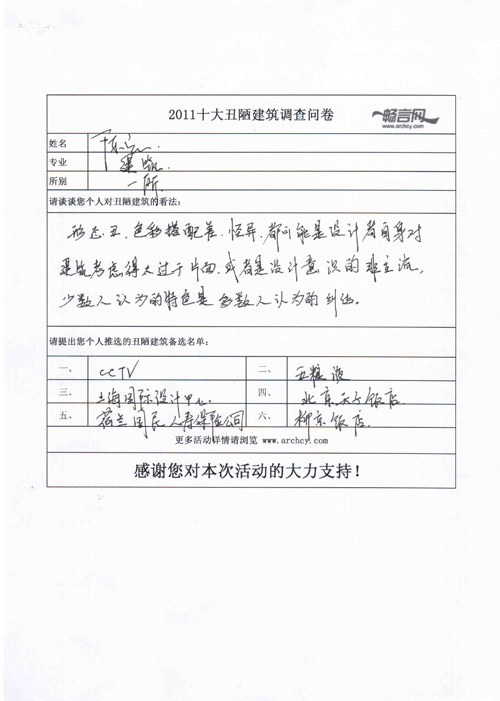 2011十大丑陋建筑调查问卷
畅言网
www.archcy.com
姓名
专业 建筑
所别 一所
请谈谈您个人对丑陋建筑的看法:
形态丑、色彩搭配差、怪异、都可能是设计者自身对
建筑考虑得太过于片面,或者是设计意识的非主流,
少数人认为的特色是多数人认为的
请提出您个人推选的丑陋建筑备选名单:
一、 CCTV 二、 五粮液
三、 上海国际设计中心 四、 北京天子饭店
五、 荷兰国民人寿保险公司 六、 柳京饭店
更多活动详情请浏览 www.archcy.com
感谢您对本次活动的大力支持!